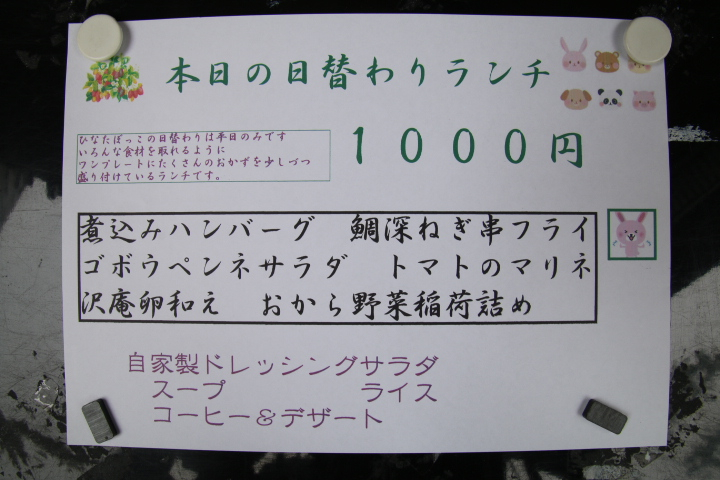 本日の日替わりランチ
ひなたぼっこの日替わりは平日のみです
いろんな食材を取れるように
ワンプレートにたくさんのおかずを少しづつ
盛り付けているランチです。
1000円
煮込みハンバーグ　鯛深ねぎ串フライ
ゴボウペンネサラダ　トマトのマリネ
沢庵卵和え　おから野菜稲荷詰め
自家製ドレッシングサラダ
スープ　ライス
コーヒー＆デザート